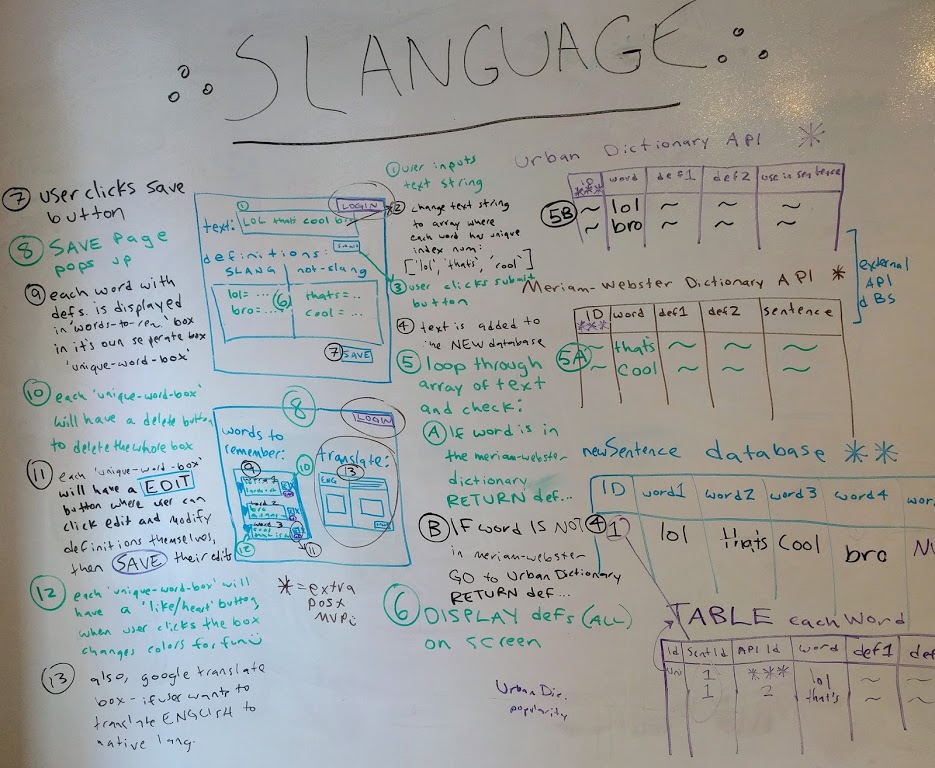 SLANGUAGE
⑦ user clicks save
button
⑧ SAVE page
pops up
⑨ each word with
defs. is displayed
in 'words-to-rem.' box
in it's own seperate box
'unique-word-box'
⑩ each 'unique-word-box'
will have a delete button
to delete the whole box
⑪ each 'unique-word-box'
will have a EDIT
button where user can
click edit and modify
definitions themselves,
then SAVE their edits
⑫ each 'unique-word-box' will
have a 'like/heart' button
when user clicks the box
changes colors for fun
⑬ also, google translate
box - if user wants to
translate ENGLISH to
native lang.
①
LOGIN
text: LOL thats cool bro
submit
definitions:
SLANG not-slang
lol = ... ⑥ thats = ..
bro = ... cool = ...
⑦ SAVE
⑧
LOGIN
words to
remember:
translate:
⑨ ⑩ ⑬
ENG
word 2
bro
word 3
cool
⑫ ⑪
* = extra
post
MVP
① user inputs
text string
② change text string
to array where
each word has unique
index num:
['lol', 'thats', 'cool']
③ user clicks submit
button
④ text is added to
the NEW database
⑤ loop through
array of text
and check:
Ⓐ If word is in
the meriam-webster
dictionary
RETURN def...
Ⓑ IF word IS NOT
in meriam-webster
GO to Urban Dictionary
RETURN def...
⑥ DISPLAY defs (ALL)
on screen
Urban Dic.
popularity
Urban Dictionary API *
ID *** word def1 def2 use in sentence
5B ~ lol ~ ~ ~
~ bro ~ ~ ~
external
API
dBS
Meriam-Webster Dictionary API *
ID *** word def1 def2 sentence
5A ~ thats ~ ~ ~
~ cool ~ ~ ~
newSentence database **
ID word1 word2 word3 word4 wor
④ 1 lol thats cool bro NU
TABLE eachWord
id Sent Id API Id word def1 def
1 *** lol ~ ~
1 2 that's ~ ~